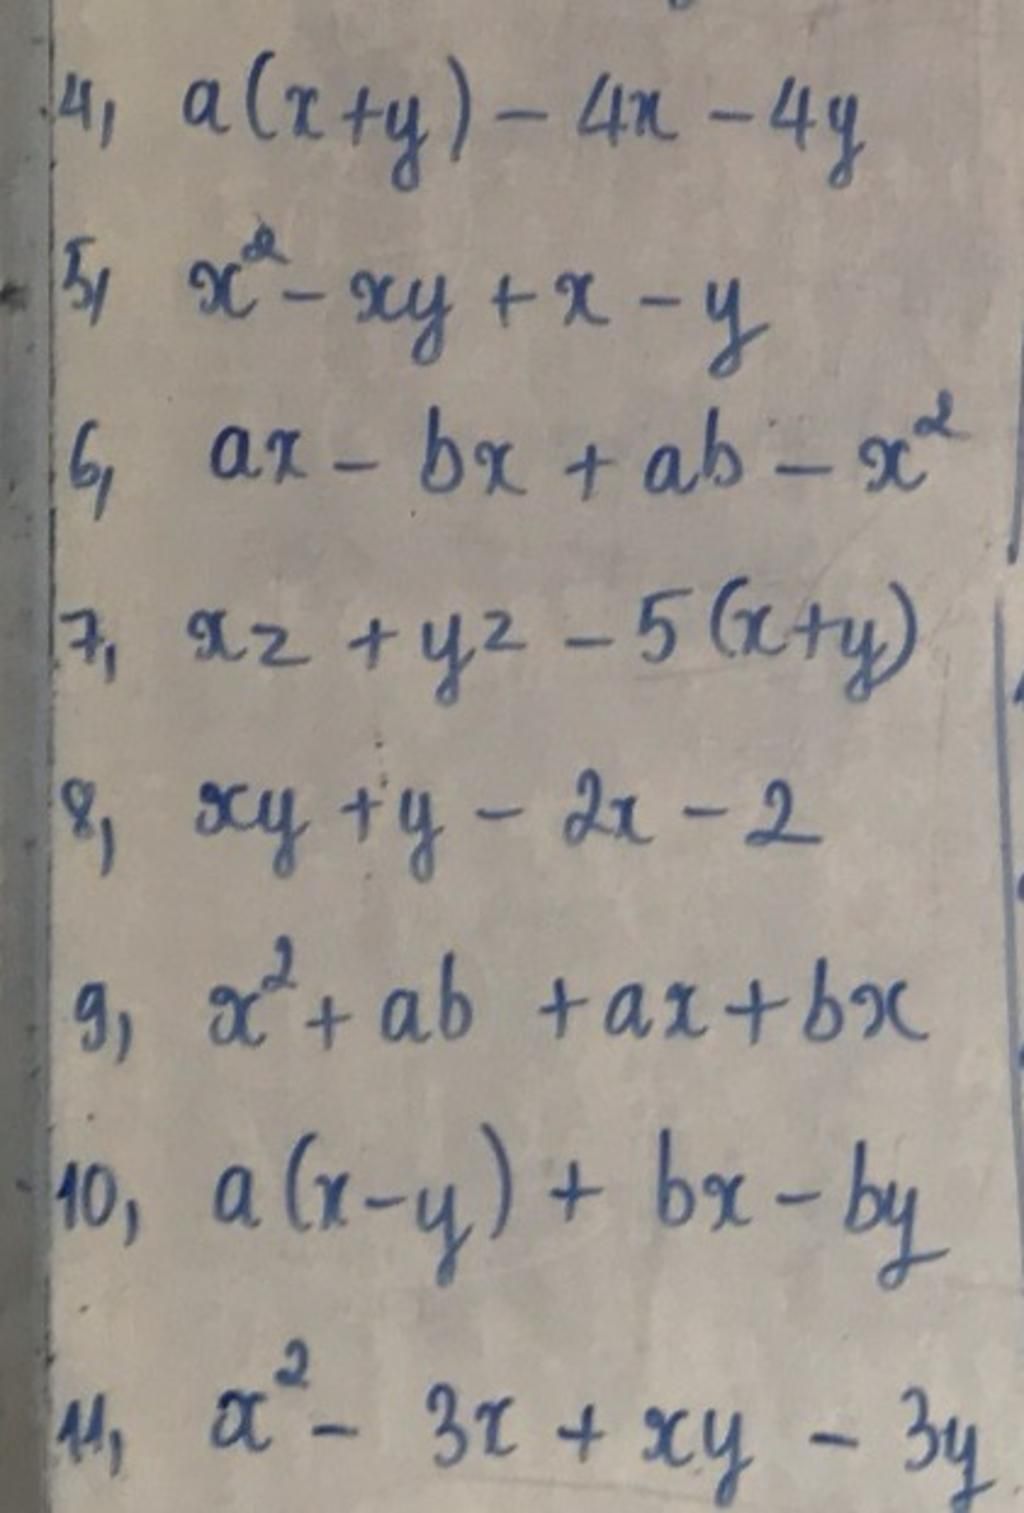 4, a(x+y) - 4x - 4y
5, x² - xy + x - y
6, ax - bx + ab - x²
7, xz + yz - 5(x+y)
8, xy + y - 2x - 2
9, x² + ab + ax + bx
10, a(x-y) + bx - by
11, x² - 3x + xy - 3y